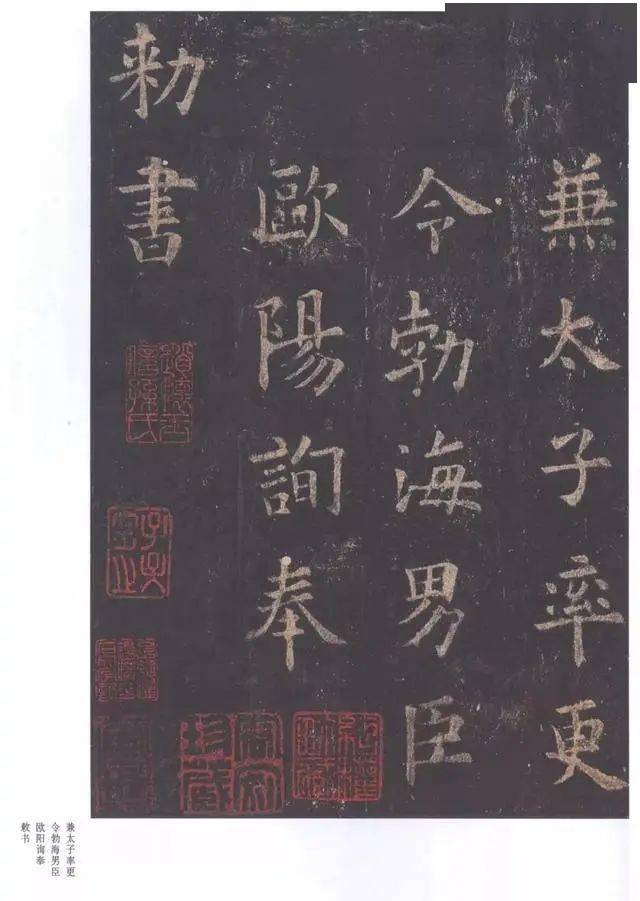 兼太子率更
令勃海男臣
歐陽詢奉
勅書
兼太子率更
令勃海男臣
欧阳询奉
敕书